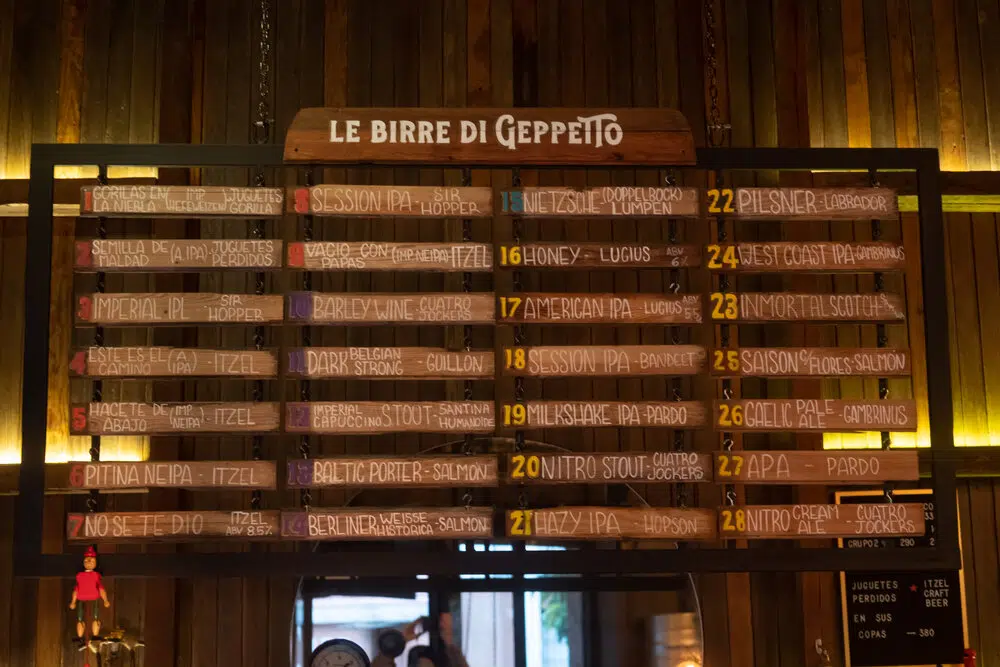 LE BIRRE DI GEPPETTO
1 GORILAS EN IMP JUGUETES
NIEBLA HEFEWEIZEN GORILA
2 SEMILLA DE (A IPA) JUGUETES
MALDAD PERDIDOS
3 IMPERIAL IPL SIR
HOPPER
4 ESTE ES EL (IPA) ITZEL
CAMINO
5 HACETE DE (IMP. ITZEL
ABAJO NEIPA)
6 PITINA NEIPA ITZEL
7 NO SE TE DIO ITZEL
ABV 8.5%
8 SESSION IPA - SIR
HOPPER
9 VACIO CON (IMP NEIPA) ITZEL
PAPAS
10 BARLEY WINE - CUATRO
JOCKERS
11 DARK BELGIAN GULLON
STRONG
12 IMPERIAL STOUT - SANTINA
CAPPUCCINO HUMANOIDE
13 BALTIC PORTER - SALMON
14 BERLINER WEISSE - SALMON
HISTORICA
15 NIETZSCHE (DOPPELBOCK)
LUMPEN
16 HONEY - LUCIUS ABV
17 AMERICAN IPA LUCIUS ABV
5.5
18 SESSION IPA - BANDCET
19 MILKSHAKE IPA - PARDO
20 NITRO STOUT - CUATRO
JOCKERS
21 HAZY IPA HOPSON
22 PILSNER - LABRADOR
24 WEST COAST IPA - GAMBRINUS
23 INMORTAL SCOTCH
25 SAISON C/ FLORES - SALMON
26 GAELIC PALE - GAMBRINUS
ALE
27 APA - PARDO
28 NITRO CREAM - CUATRO
ALE JOCKERS
GRUPO 2 290 2
JUGUETES ITZEL
PERDIDOS CRAFT
BEER
EN SUS
COPAS — 380